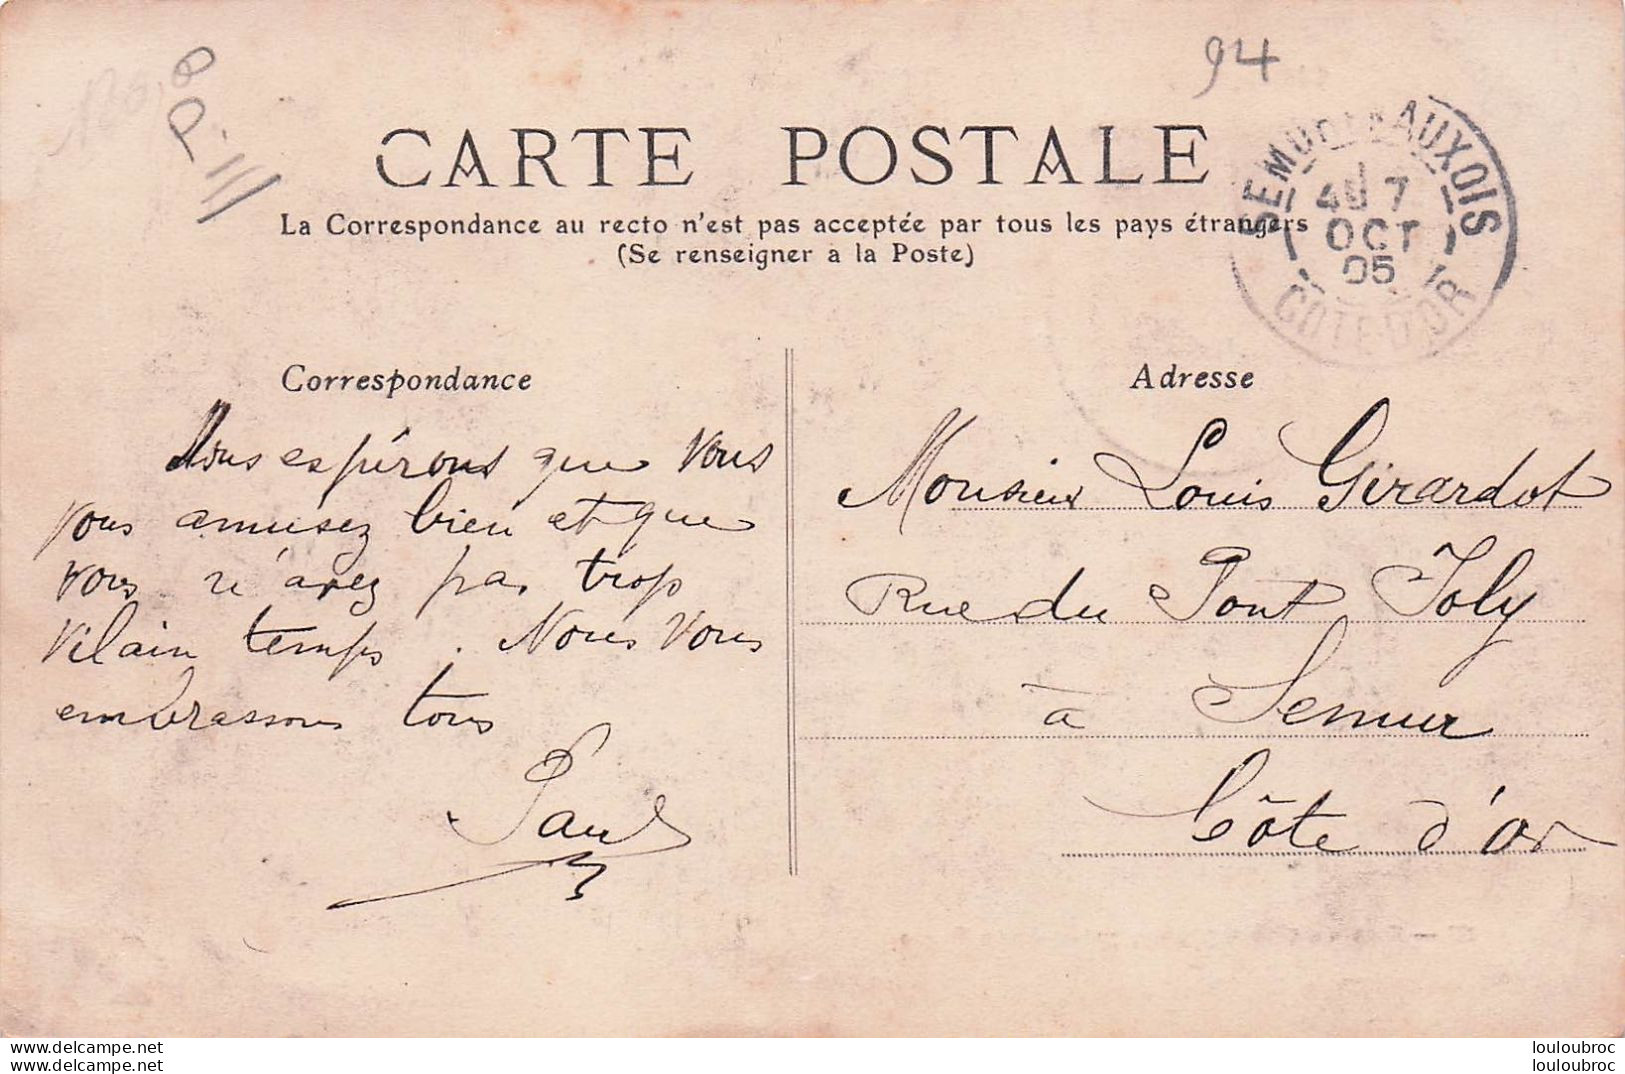 94
CARTE POSTALE
La Correspondance au recto n'est pas acceptée par tous les pays étrangers
(Se renseigner a la Poste)
SEMUR EN AUXOIS
7
OCT
05
COTE D'OR
Correspondance
Nous espérons que vous
vous amusez bien et que
vous n'avez pas trop
vilain temps. Nous vous
embrassons tous
Paul
Adresse
Monsieur Louis Girardot
Rue du Pont Joly
à Semur
Côte d'or
louloubroc
louloubroc
www.delcampe.net
www.delcampe.net